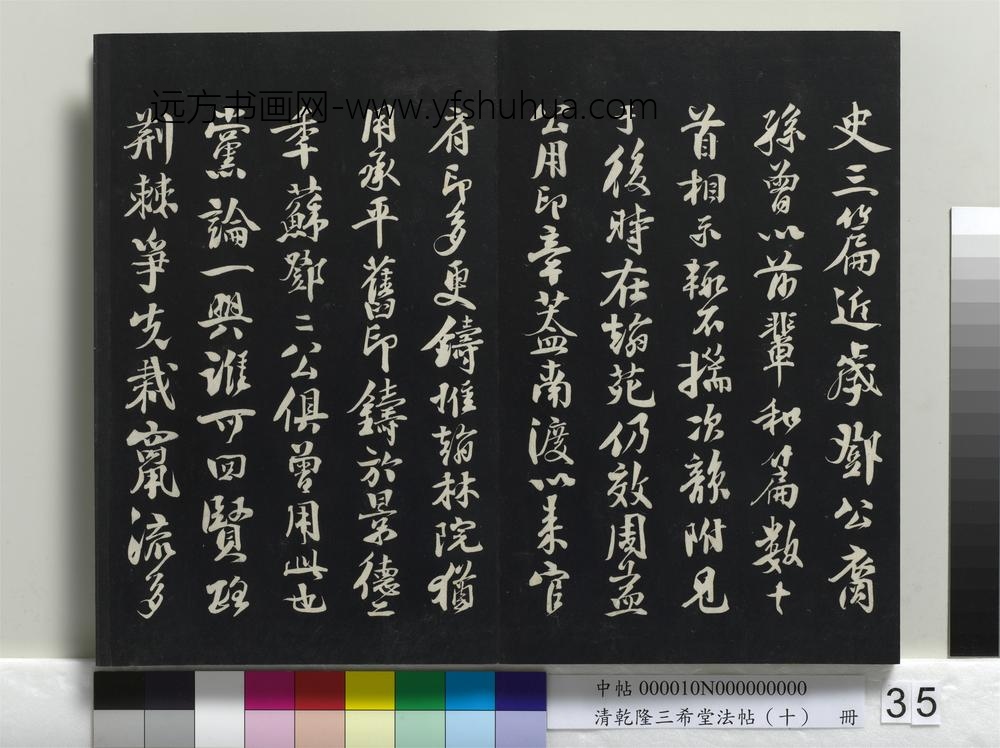 史三篇近歲鄧公裔
孫曾以前輩和篇數十
首相示輒不揣次韻附見
于後時在翰苑仍效周益
公用印章蓋南渡以來官
府印多更鑄惟翰林院猶
用承平舊印鑄於景德二
年蘇鄧二公俱曾用此也
黨論一興誰可回賢路
荆棘爭先栽竄流多
远方书画网-www.yfshuhua.com
中帖 000010N000000000
清乾隆三希堂法帖（十） 冊
35